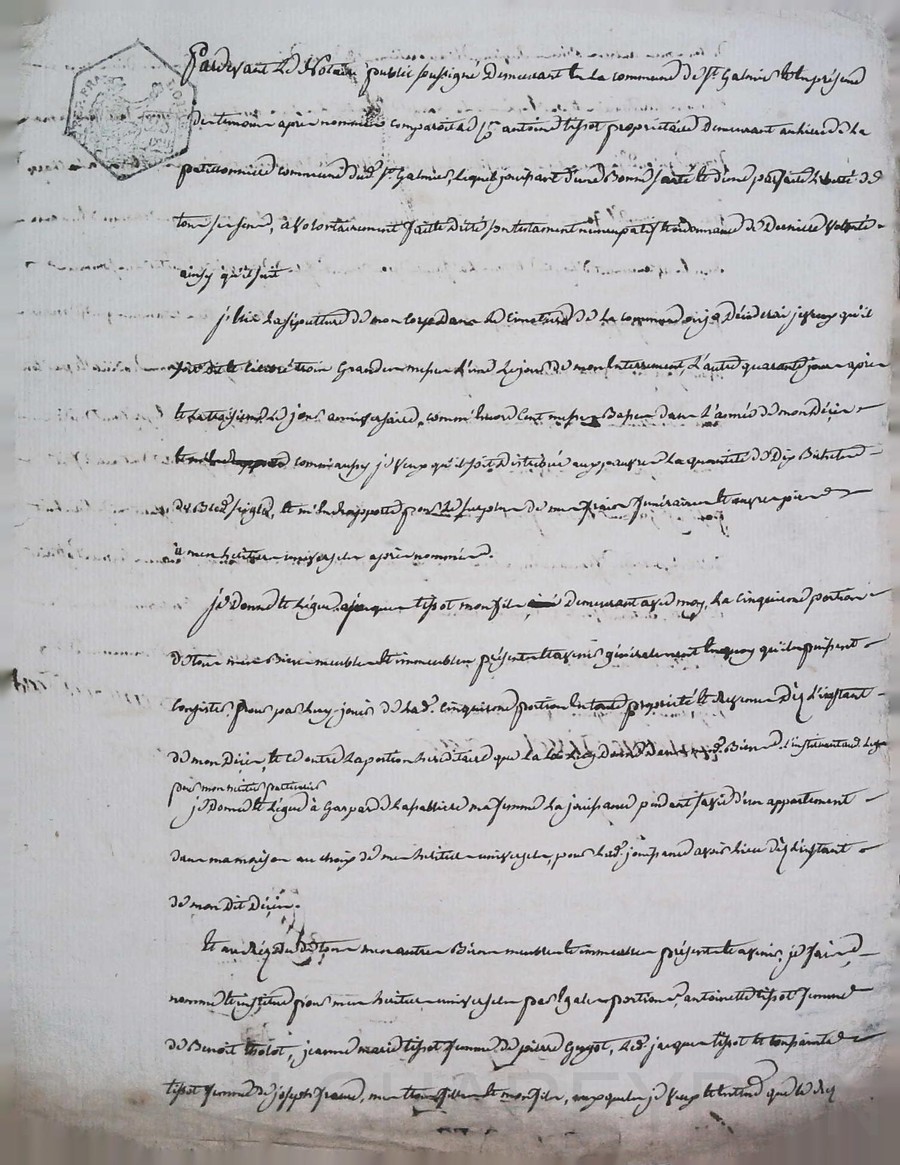 Pardevant Le Notaire public soussigné Demeurant En La commune de St. Galmier Et En présence
Des temoins après nommés comparoit led. Sr. antoine tissot propriétaire Demeurant au lieu de La
commune dud. St. Galmier, Lequel jouissant d'une Bonne santé Et d'une parfaite liberté de
tous ses sens, à Volontairement faite Dicté son testament nuncupatif Et ordonnance de Derniere Volonté
ainsy qu'il suit
j'Elis La sépulture de mon Corps Dans Le Cimetiere de La commune ou je Déciderai je veux qu'il
soit trois Grandes messes L'une Le jour de mon Enterrement L'autre quarante jours après
Et La troisieme Le jour anniversaire, comm'Encore Cent messes Basses Dans L'année de mon Décès
comm'aussy je Veux qu'il soit Distribuée aux pauvres La quantité de Dix Bichets
de Bled seigle, Et m'En rapporte pour Le surplus de mes frais funéraires Et œuvres pies
à mes héritiers universels après nommés.
je Donne Et Légue à jacques tissot mon fils Demeurant avec moy, La cinquieme portion
de tous mes Biens meubles Et immeubles présents Et avenir généralement En quoy qu'ils puissent
Consister, pour par Luy jouir de Lad. Cinquieme portion En toute propriété Et Revenu Dès L'instant
de mon Décès, Et ce outre La portion héréditaire que la Loy Donne Dans Biens. L'instituant aud. Legs
pour mon héritier particulier
je Donne Et Légue à Gasparde Lapalliere ma femme La jouissance pendant sa vie d'un appartement
dans ma maison au choix de mes héritiers universels, pour Lad. jouissance avoir lieu Dès L'instant
de mon Dit Décès.
Et au Résidu de tous mes autres Biens meubles Et immeubles présents Et avenir, je fais,
nomme Et institue pour mes héritiers universels par Egales portions, antoinette tissot femme
de Benoit tholot, jeanne marie tissot femme de pierre Guyot, Led. jacques tissot Et
tissot femme de joseph , mes trois filles Et mon fils, auxquels je Veux Et Entend que le Dis